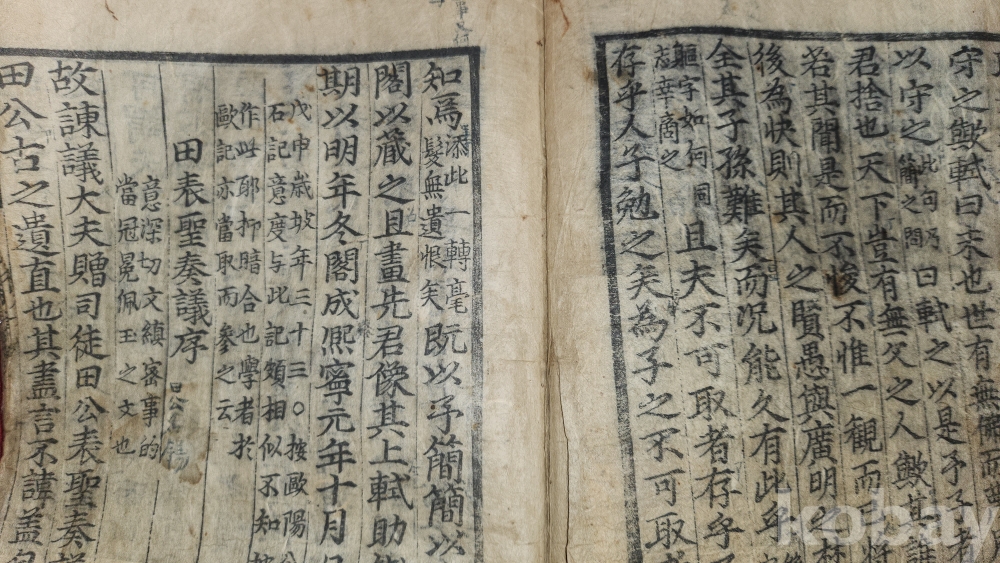 守之歟軾曰未也世有無佛而
以守之此句乃簡之問曰軾之以是予子者
君捨也天下豈有無父之人歟其誰
若其聞是而不悛不惟一觀而已將
後為快則其人之賢愚與廣明之焚
全其子孫難矣而況能久有此乎
軀字如何同志幸商之且夫不可取者存乎子
存乎人子勉之矣為子之不可取
知焉添此一轉毫髮無遺恨矣既以予簡簡以
閣以蔵之且畫先君像其上軾助
期以明年冬閣成熙寧元年十月
戊申歳坡年三十三○按歐陽公
石記意度与此記頗相似不知
作此耶抑暗合也學者於
歐記亦當取而參之云
田表聖奏議序
意深切文縝密事的
當冠冕佩玉之文也
故諫議大夫贈司徒田公表聖奏
田公古之遺直也其盡言不諱盖自
kobay